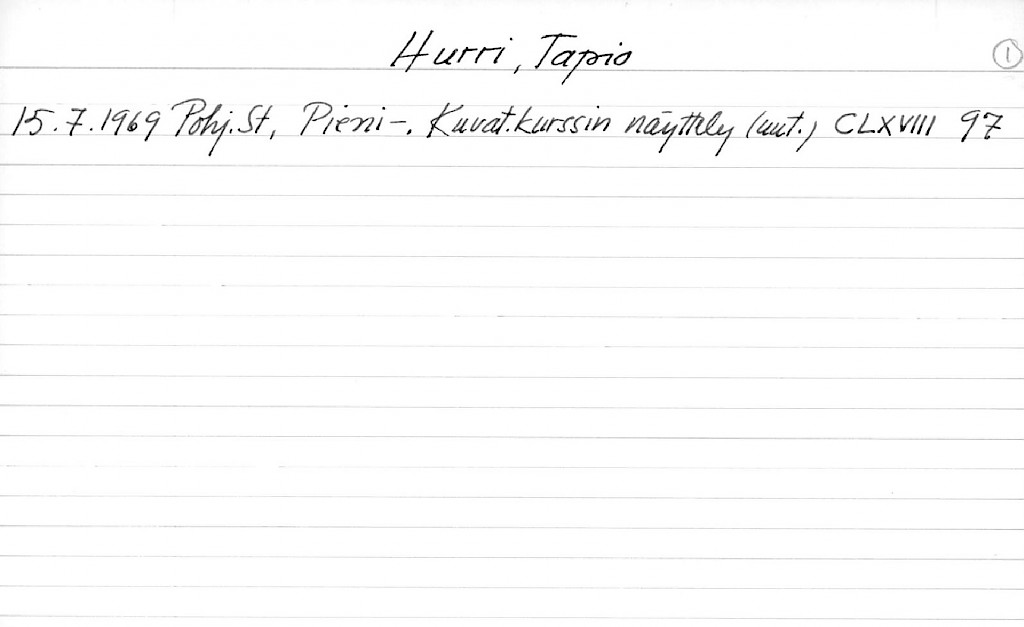 Hurri, Tapio 1
15.7.1969 Pohj.St, Pieni-. Kuvat.kurssin näyttely (uut.) CLXVIII 97